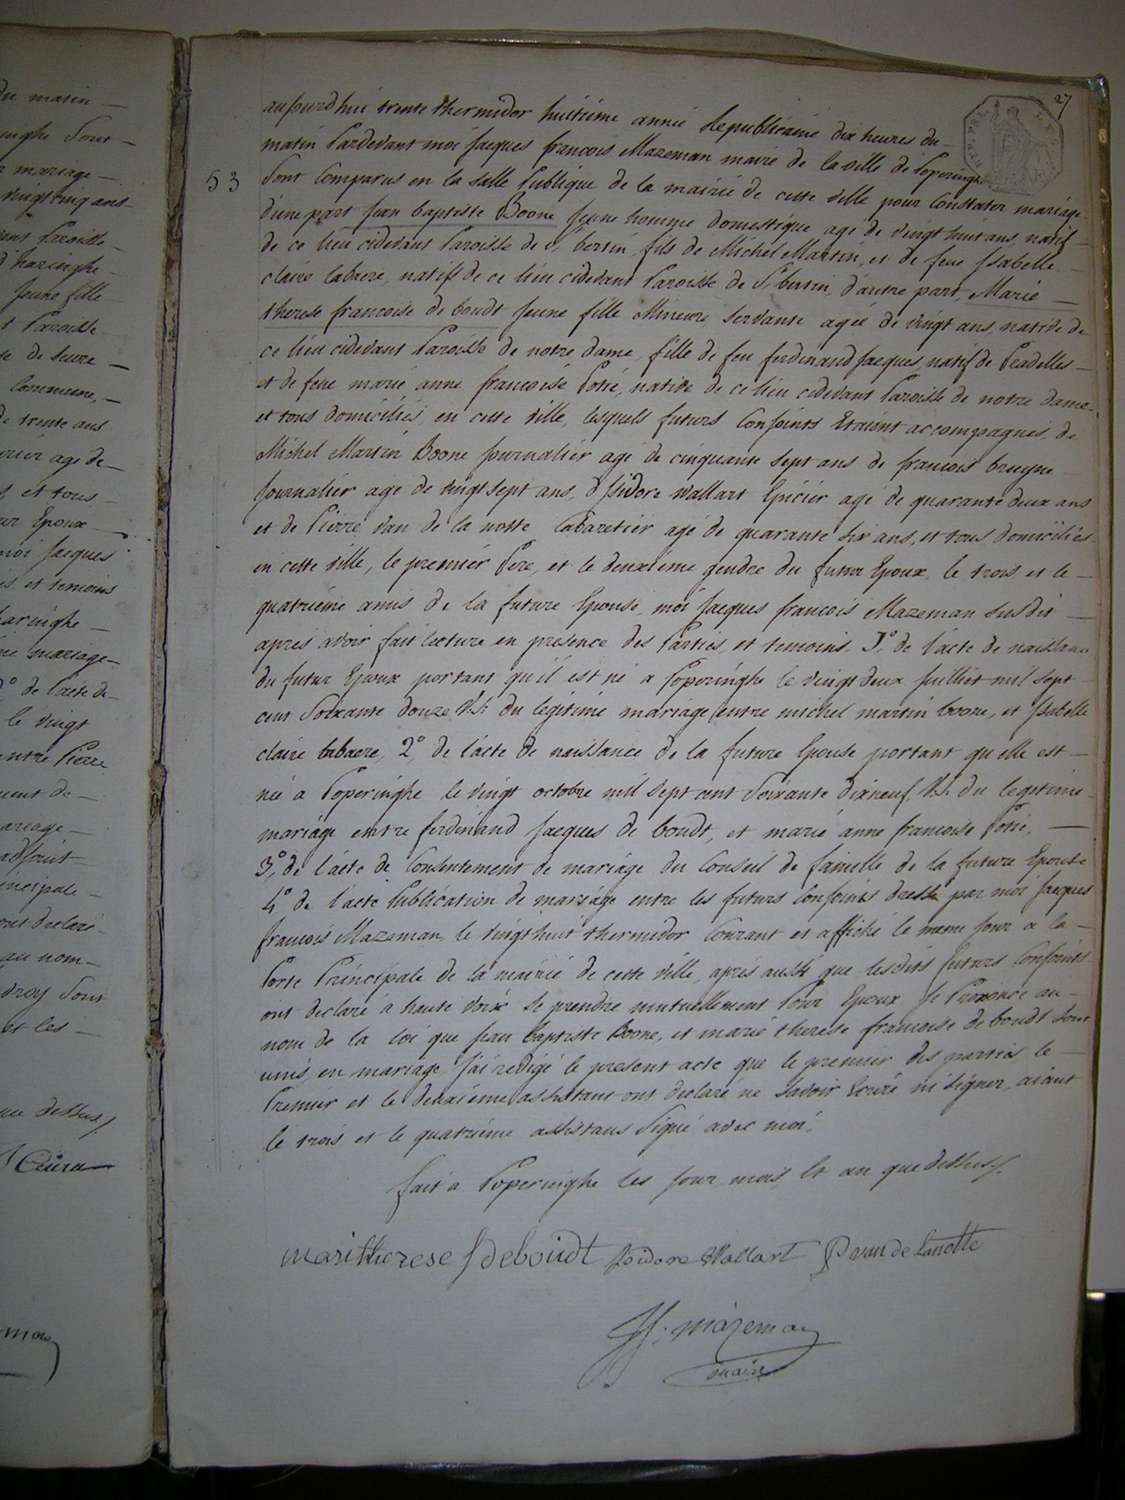 du matin —
inghe Sont —
mariage —
vingt cinq ans —
Paroisse —
d'haringhe —
jeune fille
Paroisse
de feue —
Commune, —
de trente ans
age de —
et tous —
Epoux —
moi Jacques
is et temoins
haringhe —
mariage —
2° de l'acte de
le vingt
entre Pierre
de —
mariage —
principale —
ont declaré
au nom —
Sont
et les —
que dessus
27
53
aujourd'hui trente thermidor huitieme année Republicaine dix heures du —
matin Pardevant moi Jacques francois Mazeman maire de la ville de Poperinghe
Sont Comparus en la salle Publique de la mairie de cette ville pour Constater mariage
d'une part Jean baptiste Boone Jeune homme domestique agé de vingt huit ans, natif —
de ce lieu cidevant Paroisse de St bertin, fils de Michel Martin, et de feue Isabelle —
claire Cabaere, natifs de ce lieu cidevant Paroisse de St bertin, d'autre part, Marie —
therese francoise de boudt Jeune fille Mineure Servante agée de vingt ans native de
ce lieu cidevant Paroisse de notre dame, fille de feu ferdinand Jacques, natif de Pradelles —
et de feue marie anne francoise Potié, native de ce lieu cidevant Paroisse de notre dame —
et tous domiciliés, en cette ville, lesquels futurs Conjoints Etaient accompagnés, de
Michel Martin Boone Journalier agé de cinquante sept ans de francois brugne
Journalier age de vingt sept ans, d'Isidore Wallart Epicier agé de quarante deux ans
et de Pierre van de la notte Cabaretier agé de quarante six ans, et tous domiciliés —
en cette ville, le premier Pere, et le deuxieme gendre du futur Epoux, le trois et le —
quatrieme amis de la future Epouse, moi Jacques francois Mazeman susdit —
apres avoir fait lecture en presence des Parties, et temoins 1° de l'acte de naissance
du futur Epoux portant qu'il est né a Poperinghe le vingt deux Juillet mil sept
cent Soixante douze V.S: du legitime mariage entre michel martin boone, et Isabelle
claire Cabaere, 2° de l'acte de naissance de la future Epouse portant qu'elle est —
née a Poperinghe le vingt octobre mil sept cent Soixante dixneuf V.S. du legitime —
mariage entre ferdinand Jacques de boudt, et marie anne francoise Potié, —
3° de l'acte de Consentement de mariage du Conseil de famille de la future Epouse
4° de l'acte Publication de mariage entre les futurs Conjoints dressé par moi Jacques
francois Mazeman, le vingt huit thermidor Courant et affiché le meme Jour a la —
Porte Principale de la mairie de cette ville, après aussi que lesdits futurs Conjoints
ont declaré a haute voix se prendre mutuellement Pour Epoux Je Prononce au —
nom de la loi que Jean baptiste Boone, et marie therese francoise de boudt Sont
unis en mariage J'ai redigé le present acte que le premier des parties le —
Premier et le deuxieme assistant ont declaré ne savoir Ecrire ni signer, aiant
le trois et le quatrieme assistans Signé avec moi.
fait a Poperinghe les Jour, mois, et an que dessus.
mari therese f deboudt Isidore Wallart P van de Lanotte
JF. Mazeman
maire